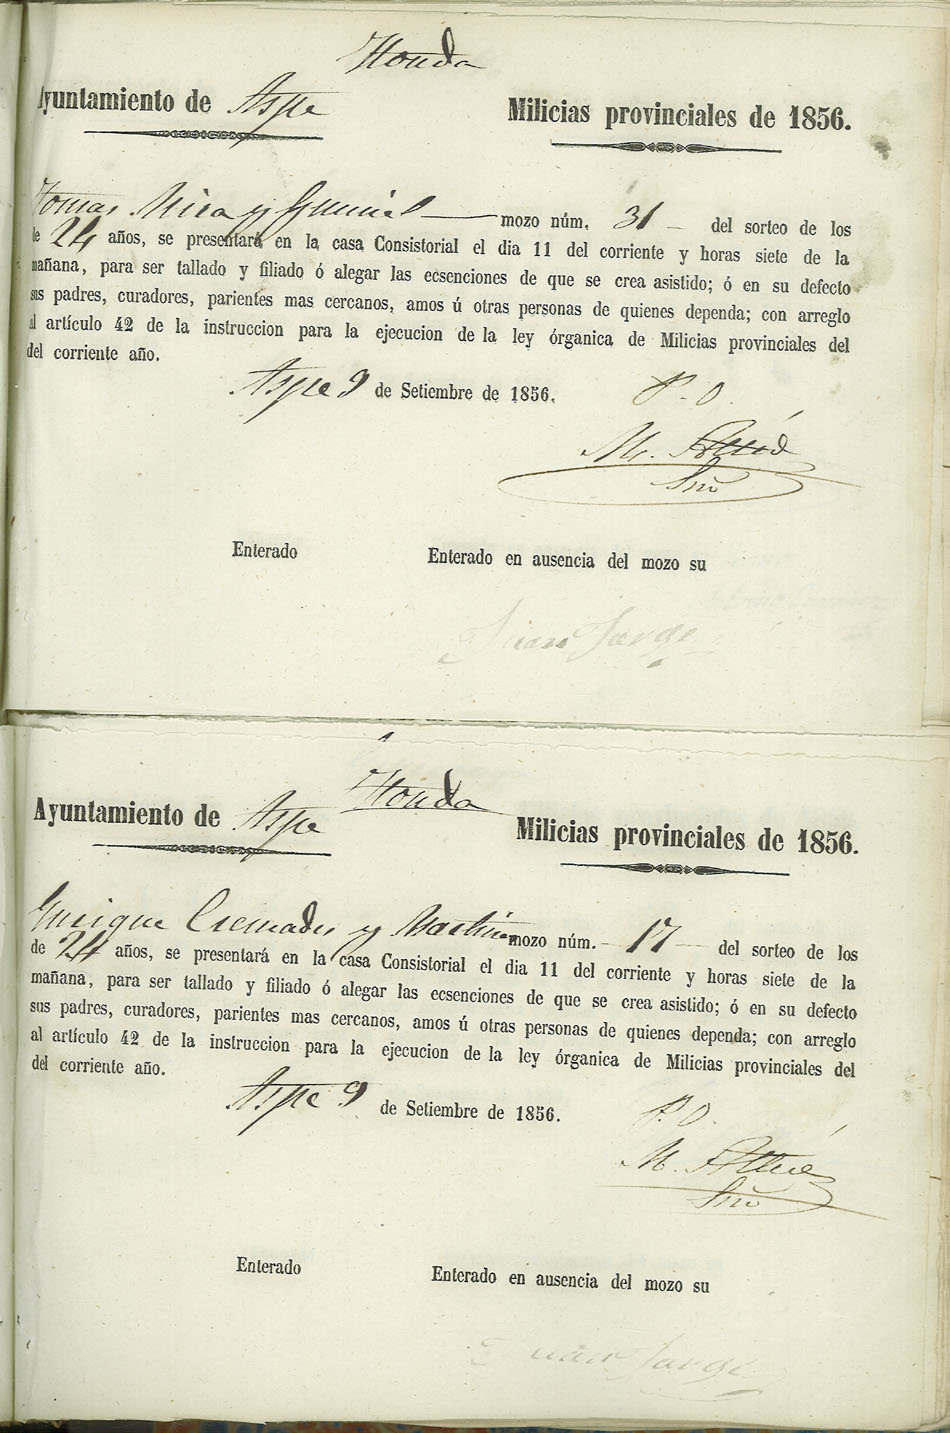 Honda
Ayuntamiento de Aspe
Milicias provinciales de 1856.
Tomas Mira y mozo núm. 31 del sorteo de los
de 24 años, se presentará en la casa Consistorial el dia 11 del corriente y horas siete de la
mañana, para ser tallado y filiado ó alegar las ecsenciones de que se crea asistido; ó en su defecto
sus padres, curadores, parientes mas cercanos, amos ú otras personas de quienes dependa; con arreglo
al artículo 42 de la instruccion para la ejecucion de la ley órganica de Milicias provinciales del
del corriente año.
Aspe 9 de Setiembre de 1856.
P. O.
M.
Srio
Enterado
Enterado en ausencia del mozo su
Juan Jorge
Honda
Ayuntamiento de Aspe
Milicias provinciales de 1856.
Enrique Cremades y Martinez mozo núm. 17 del sorteo de los
de 24 años, se presentará en la casa Consistorial el dia 11 del corriente y horas siete de la
mañana, para ser tallado y filiado ó alegar las ecsenciones de que se crea asistido; ó en su defecto
sus padres, curadores, parientes mas cercanos, amos ú otras personas de quienes dependa; con arreglo
al artículo 42 de la instruccion para la ejecucion de la ley órganica de Milicias provinciales del
del corriente año.
Aspe 9 de Setiembre de 1856.
P. O.
M.
Srio
Enterado
Enterado en ausencia del mozo su
Juan Jorge